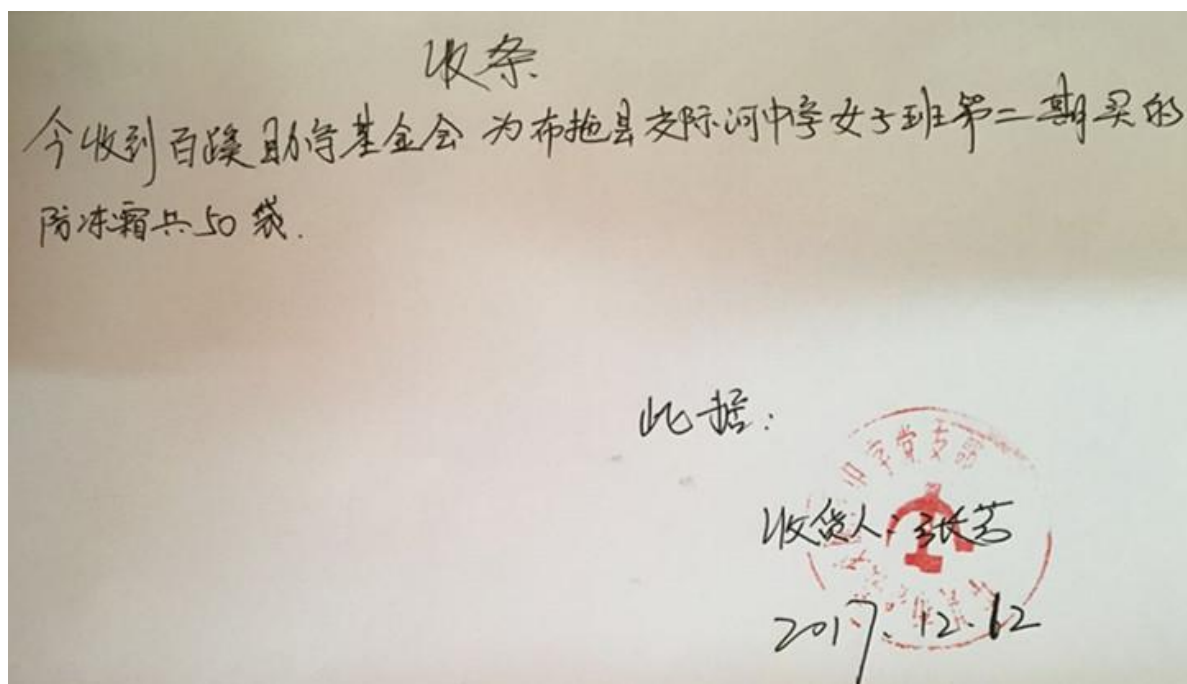 收条
今收到百蹊助学基金会 为布拖县交际河中学女子班第二期买的
防冻霜共50袋.
此据:
中学党支部
收货人:张芳
2017.12.12